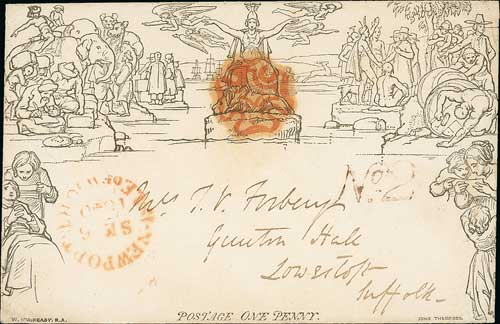 No 2
NEWPORT
SE 5
1840
Mrs T. V. Forbergh
Gunton Hall
Lowestoft
Suffolk.
W. MULREADY, R.A.
POSTAGE ONE PENNY.
JOHN THOMPSON